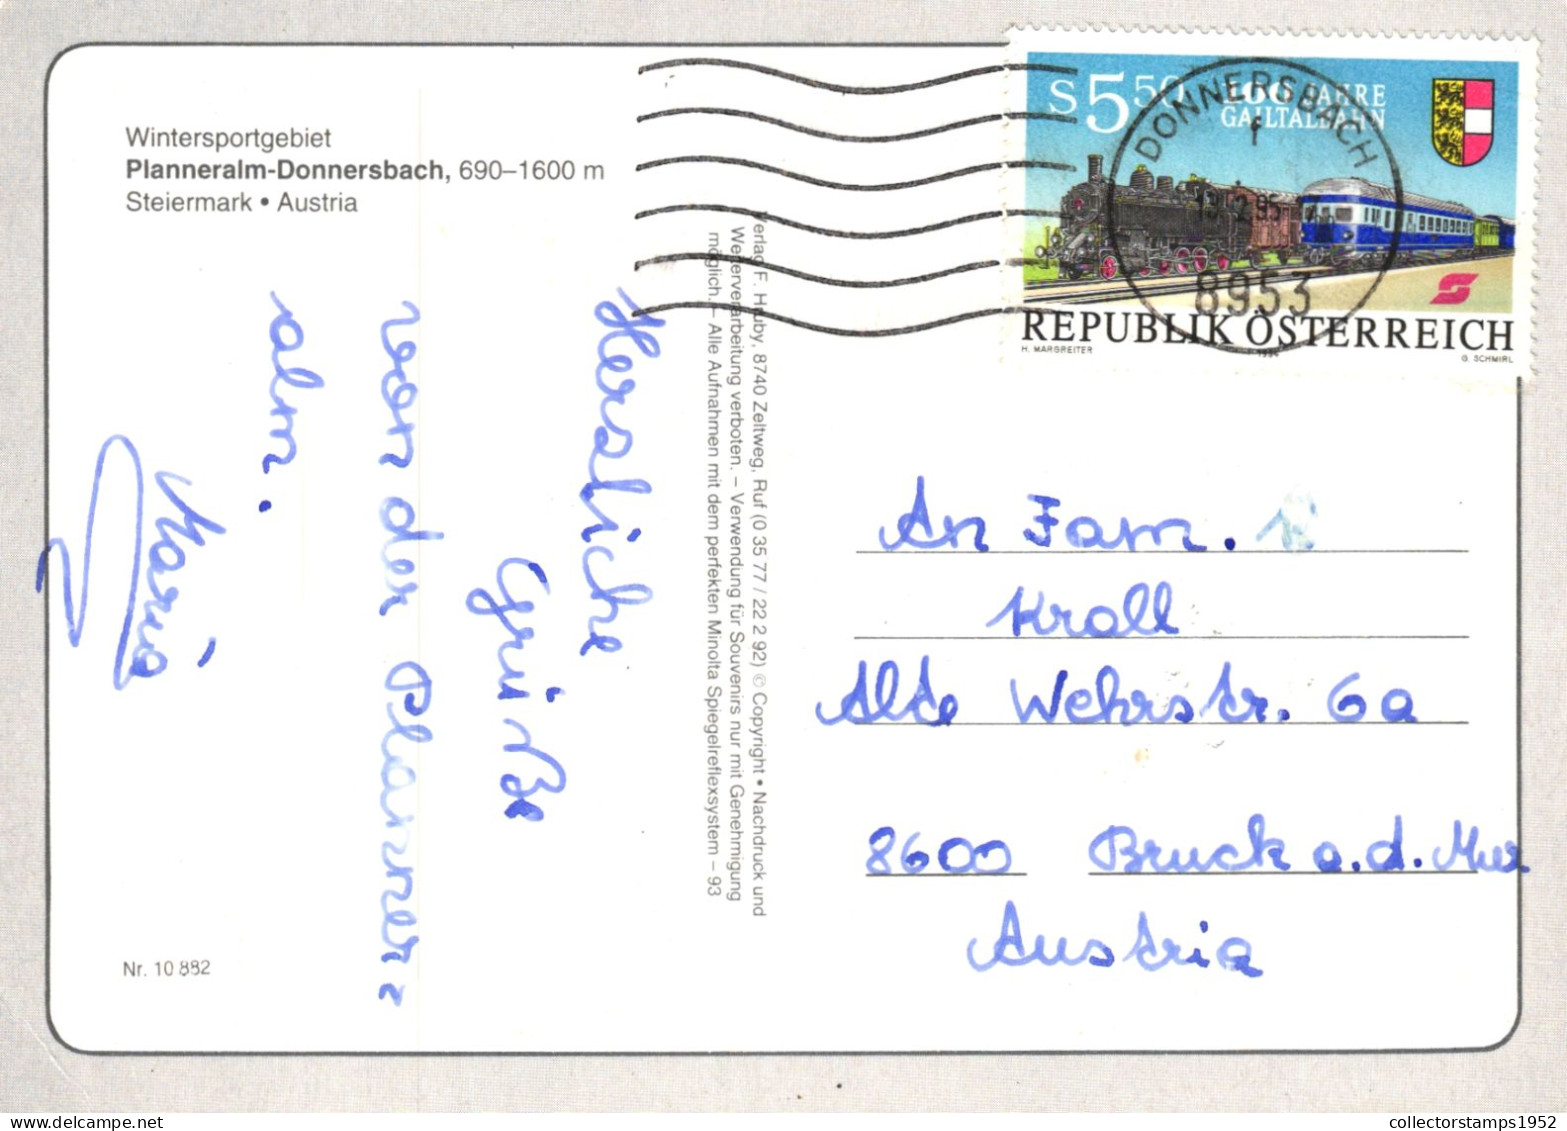 Wintersportgebiet
Planneralm-Donnersbach, 690–1600 m
Steiermark • Austria
S 5.50 100 JAHRE
GAILTALBAHN
REPUBLIK ÖSTERREICH
H. MARGREITER
G. SCHMIRL
DONNERSBACH
f
8953
Verlag F. Hruby, 8740 Zeltweg, Ruf (0 35 77 / 22 2 92) © Copyright • Nachdruck und
Weiterverarbeitung verboten. – Verwendung für Souvenirs nur mit Genehmigung
möglich. – Alle Aufnahmen mit dem perfekten Minolta Spiegelreflexsystem – 93
Herzliche
Grüße
von der Planner-
alm.
Maria
An Fam.
Kroll
Alte Wehrstr. 6a
8600 Bruck a.d. Mur
Austria
Nr. 10 882
collectorstamps1952